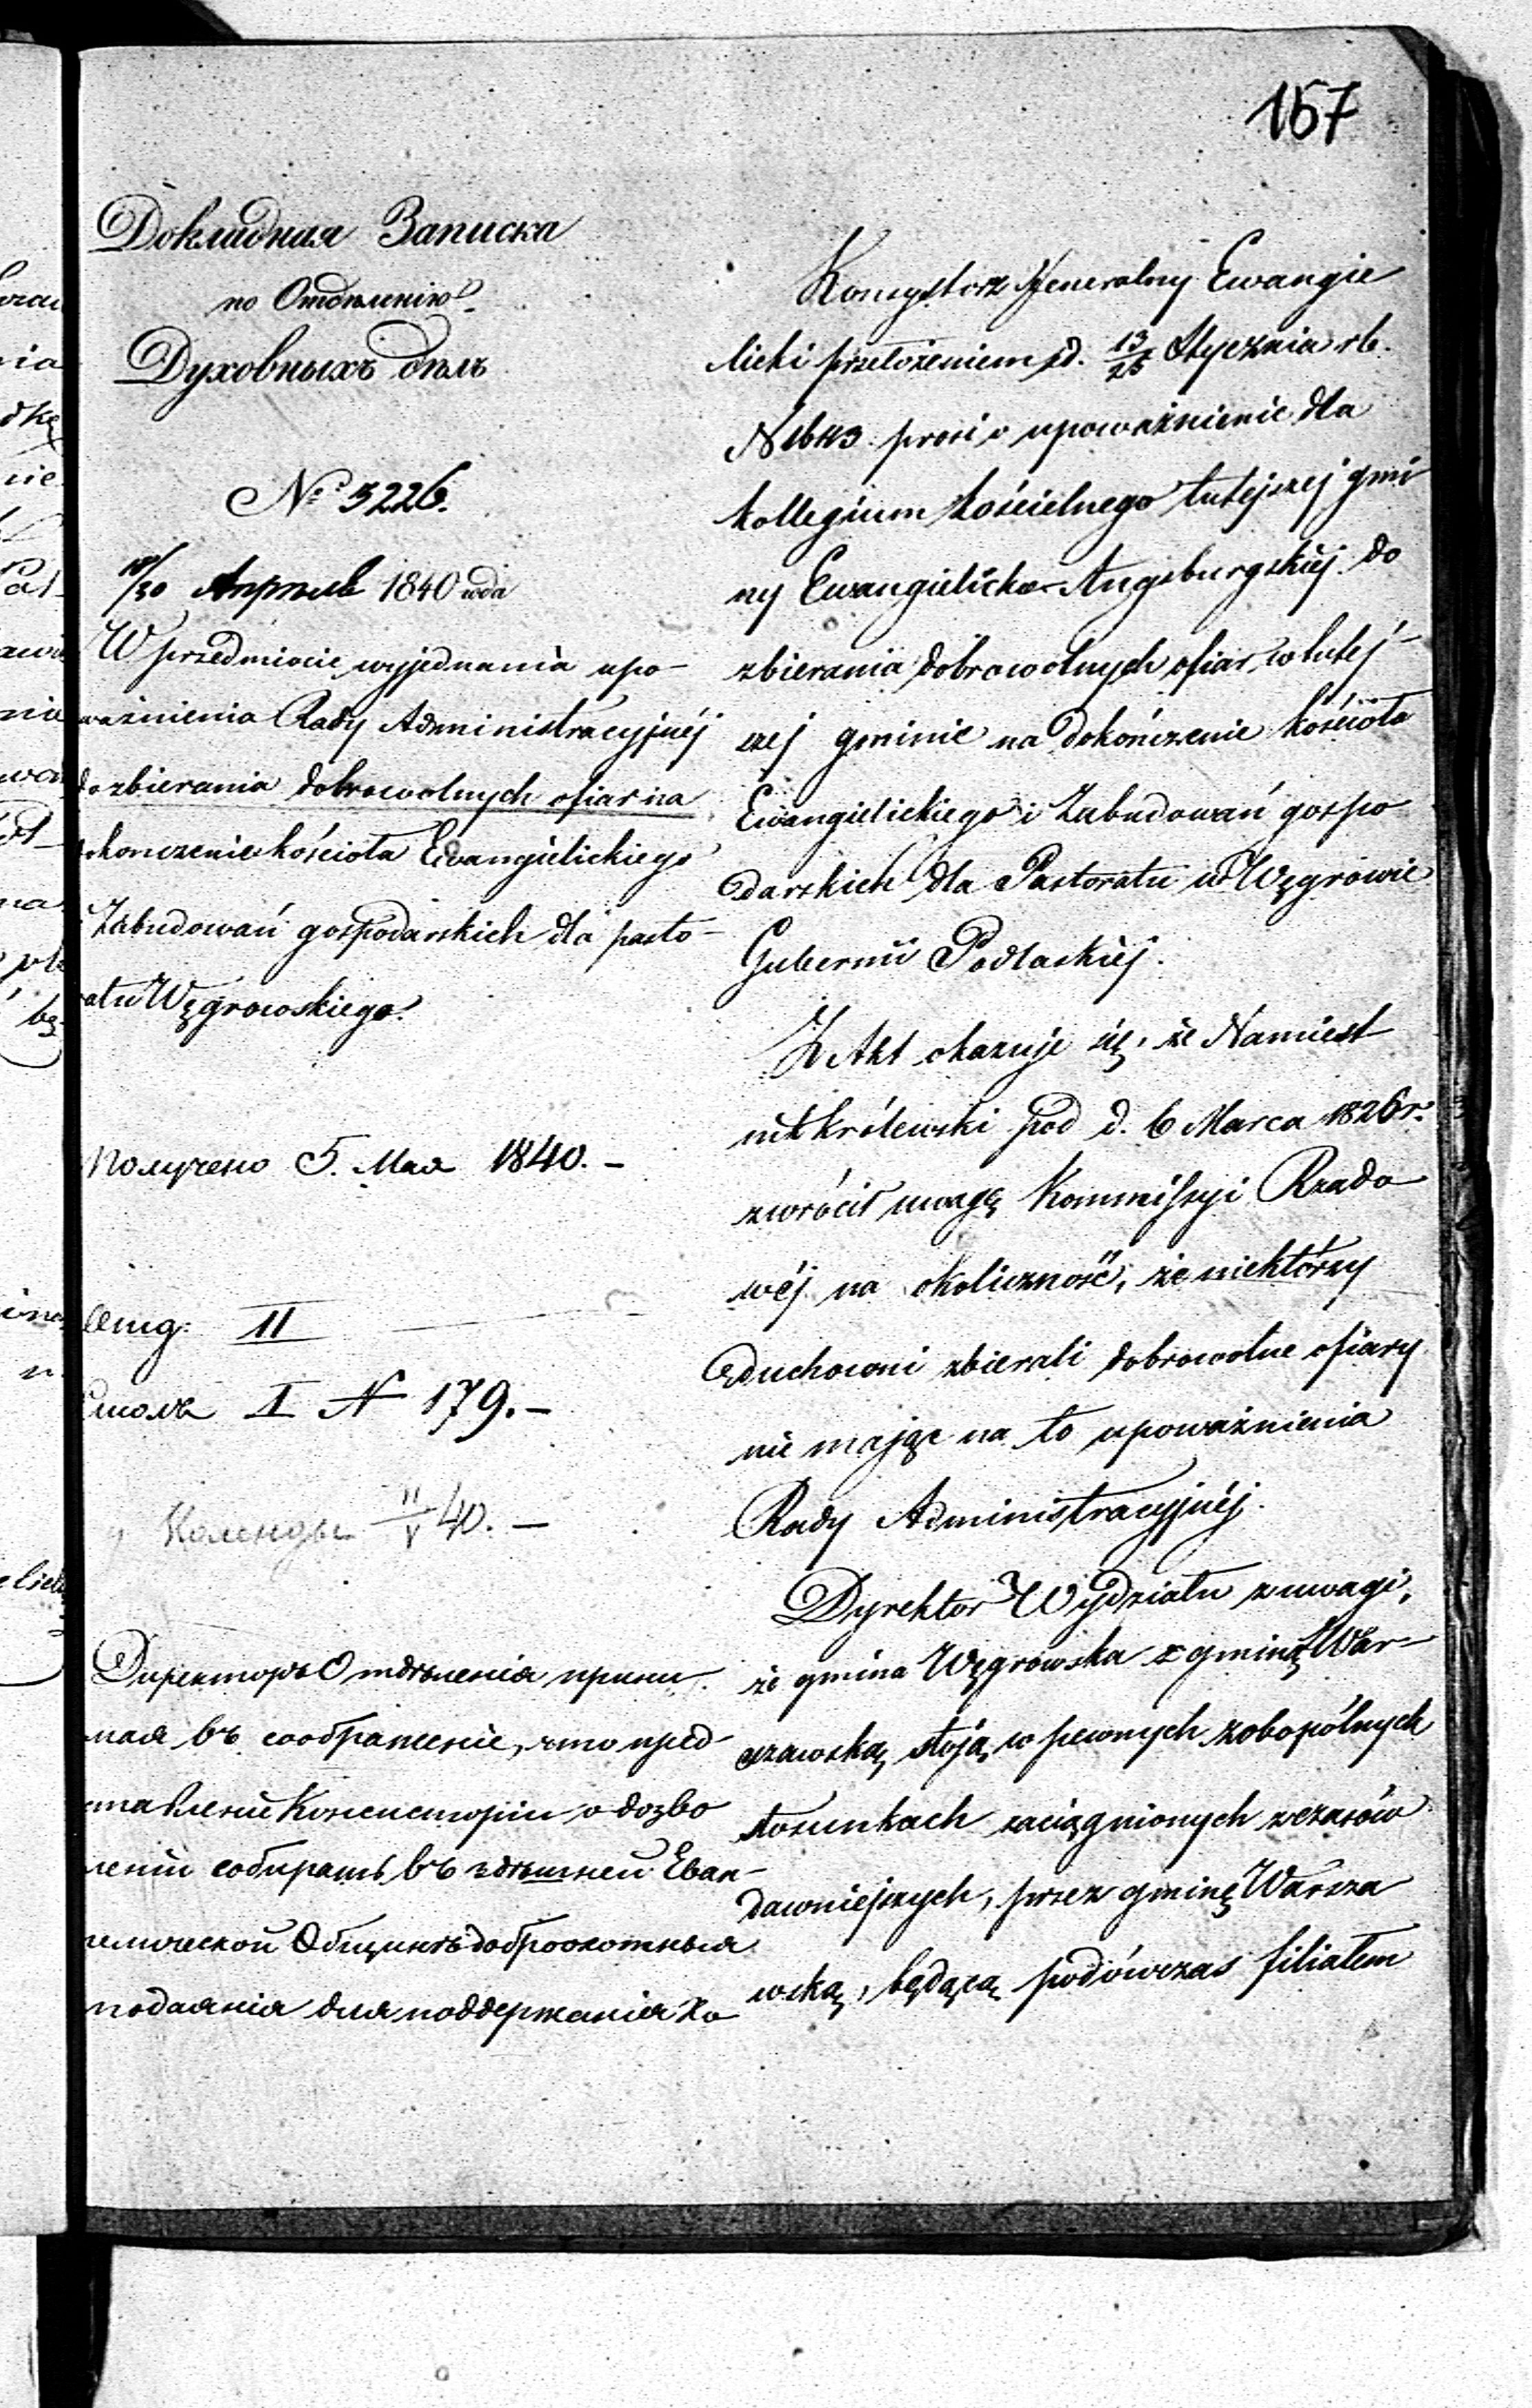 157
Докладная Записка
по Отдѣленію
Духовныхъ дѣлъ
№ 3226.
18/30 Апрѣля 1840 года
W przedmiocie wyjednania upo-
ważnienia Rady Administracyjnéj
do zbierania dobrowolnych ofiar na
dokonczenie kościoła Ewangielickiego
i Zabudowań gospodarskich dla pasto-
ratu Węgrowskiego.
Получено 5. Мая 1840. –
II
I N 179. –
Коленды II/V 40. –
Директоръ Отдѣленія прини-
мая въ соображеніе, что пред-
ставленіе Консисторіи о дозво
леніи собирать въ здѣшней Еван-
гелической Общинѣ доброхотныя
подаянія для поддержанія ко
Konsystorz Jeneralny Ewangie
licki przełożeniem z d. 13/25 Stycznia rb.
N 1643 prosi o upoważnienie dla
kollegium kościelnego tutejszej gmi
ny Ewangielicko-Augsburgskiéj do
zbierania dobrowolnych ofiar w tutéj-
szej gminie na dokończenie kościoła
Ewangielickiego i Zabudowań gospo
darskich dla Pastoratu w Węgrowie
Gubernii Podlaskiéj.
Z Akt okazuje się, że Namiest
nik królewski pod d. 6 Marca 1826 r.
zwrócił uwagę Kommissyi Rządo
wéj na okoliczność, że niektórzy
duchowni zbierali dobrowolne ofiary
nie mając na to upoważnienia
Rady Administracyjnéj.
Dyrektor Wydziału z uwagi,
że gmina Węgrowska z gminą War-
szawską stoją w pewnych zobopólnych
stosunkach zaciągnionych z czasów
dawniejszych, przez gminę Warsza
wską, będącą podówczas filiałem